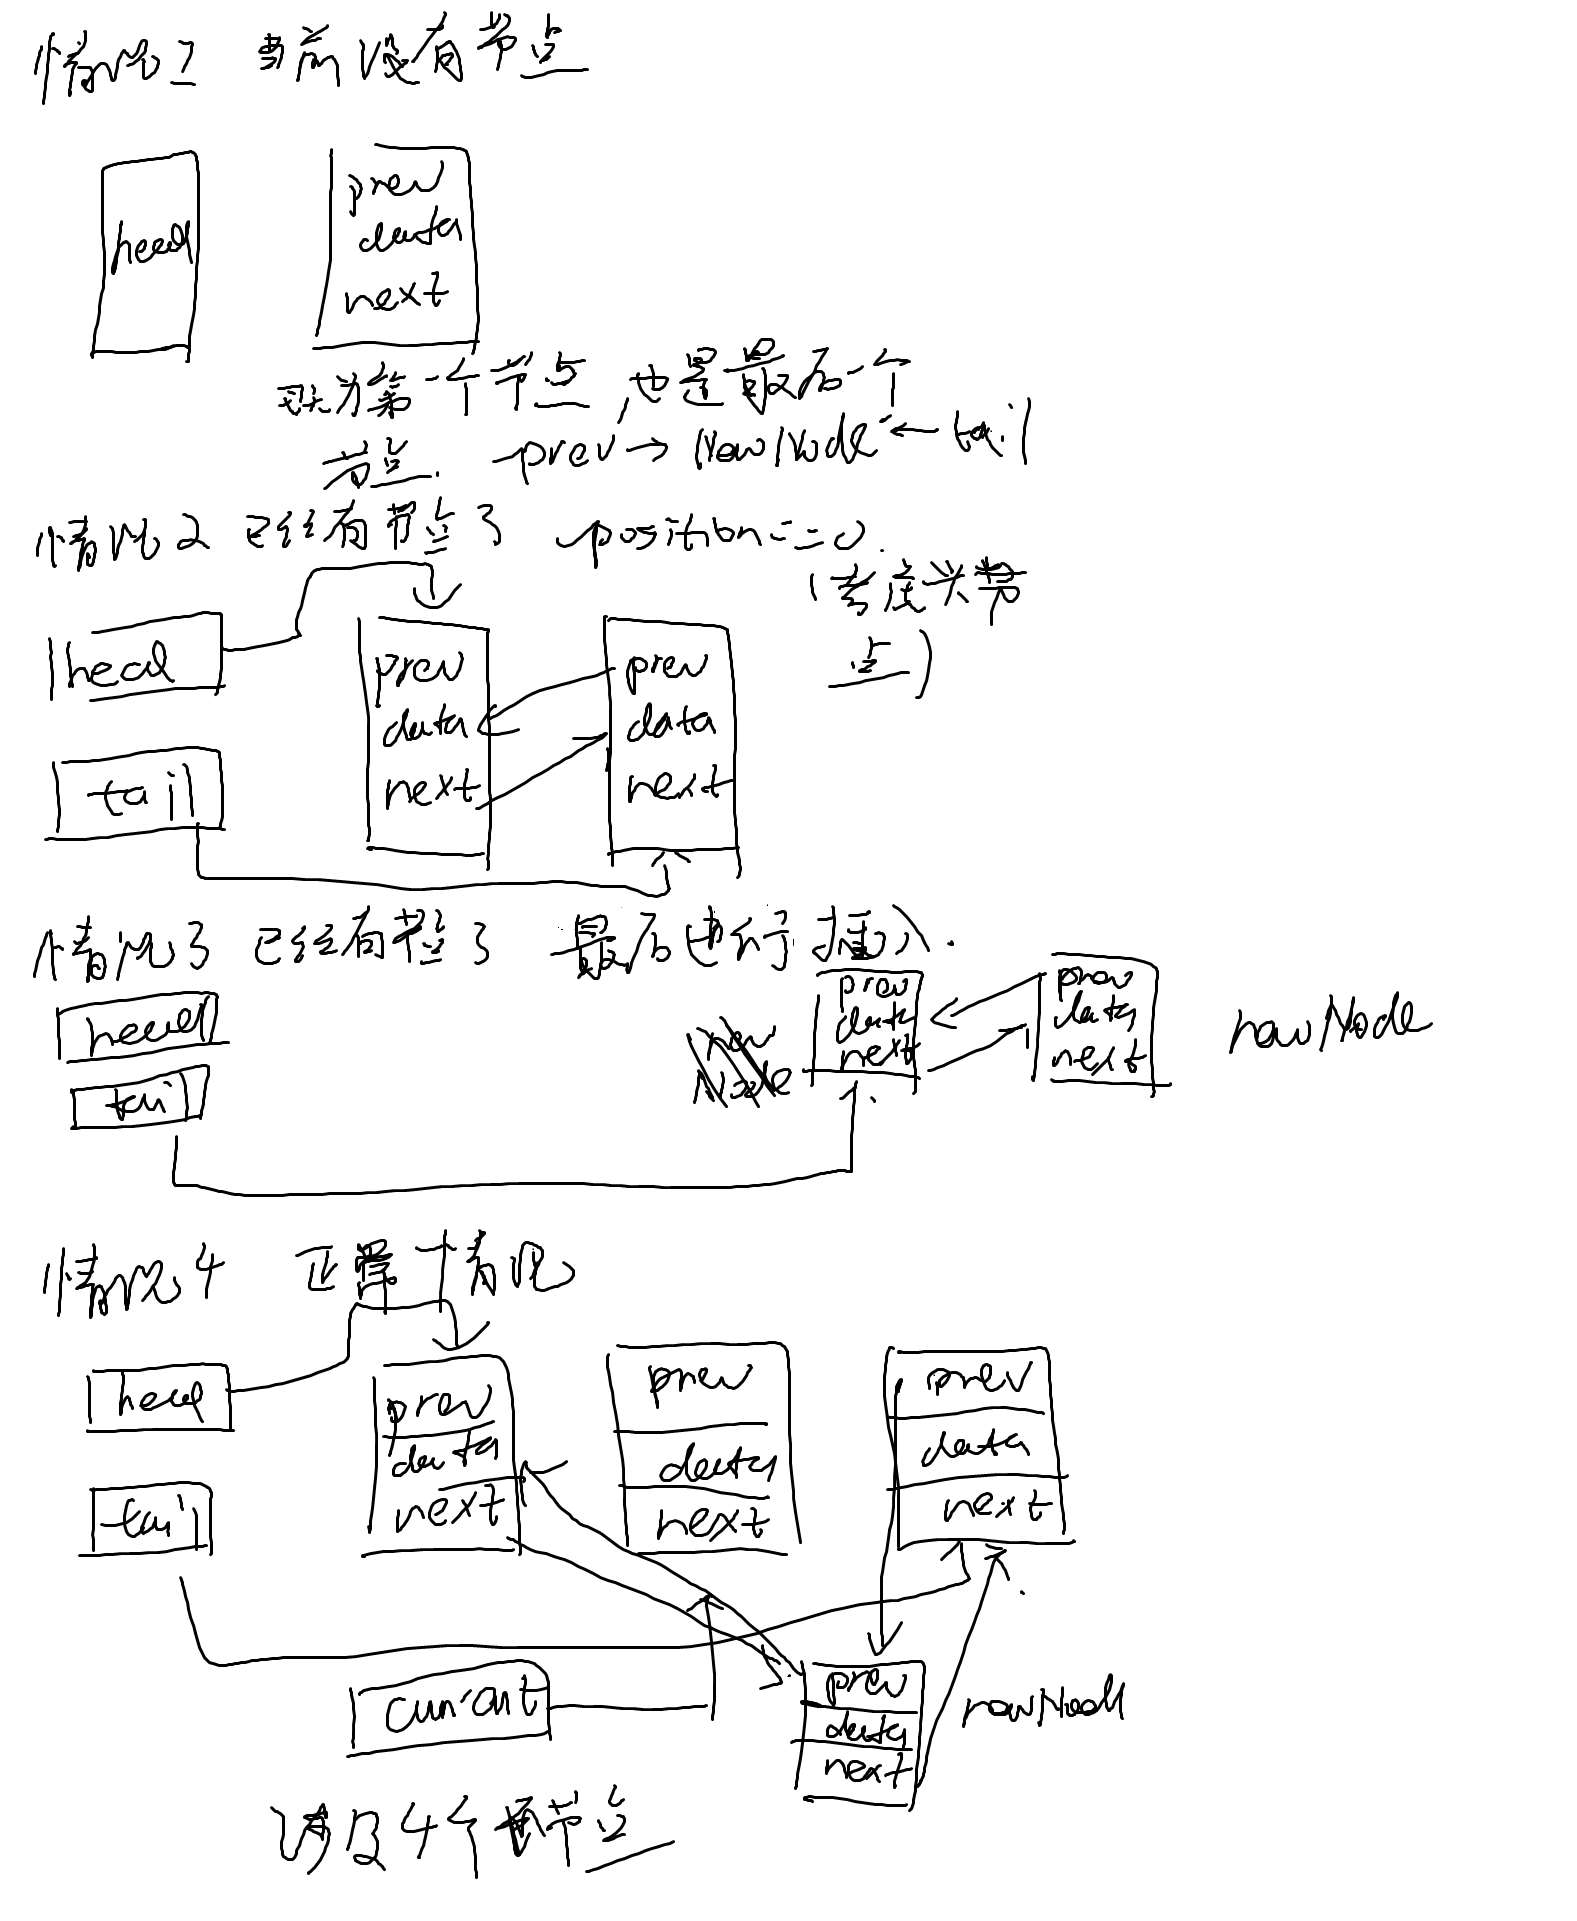 情况1 当前没有节点
head
prev
data
next
既为第一个节点,也是最后一个
节点. prev→NewNode←tail
情况2 已经有节点了 position==0
(考虑头节
点)
head
prev
data
next
prev
data
next
tail
情况3 已经有节点了 最后进行插入.
head
tail
new
Node
prev
data
next
prev
data
next
newNode
情况4 正常情况
head
tail
prev
data
next
prev
data
next
prev
data
next
current
prev
data
next
newNode
涉及4个节点